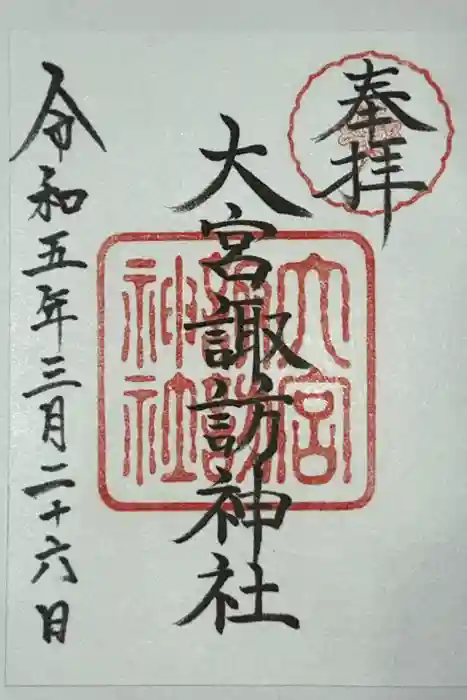 奉拝
大宮諏訪神社
令和五年三月二十六日
大宮
諏訪
神社